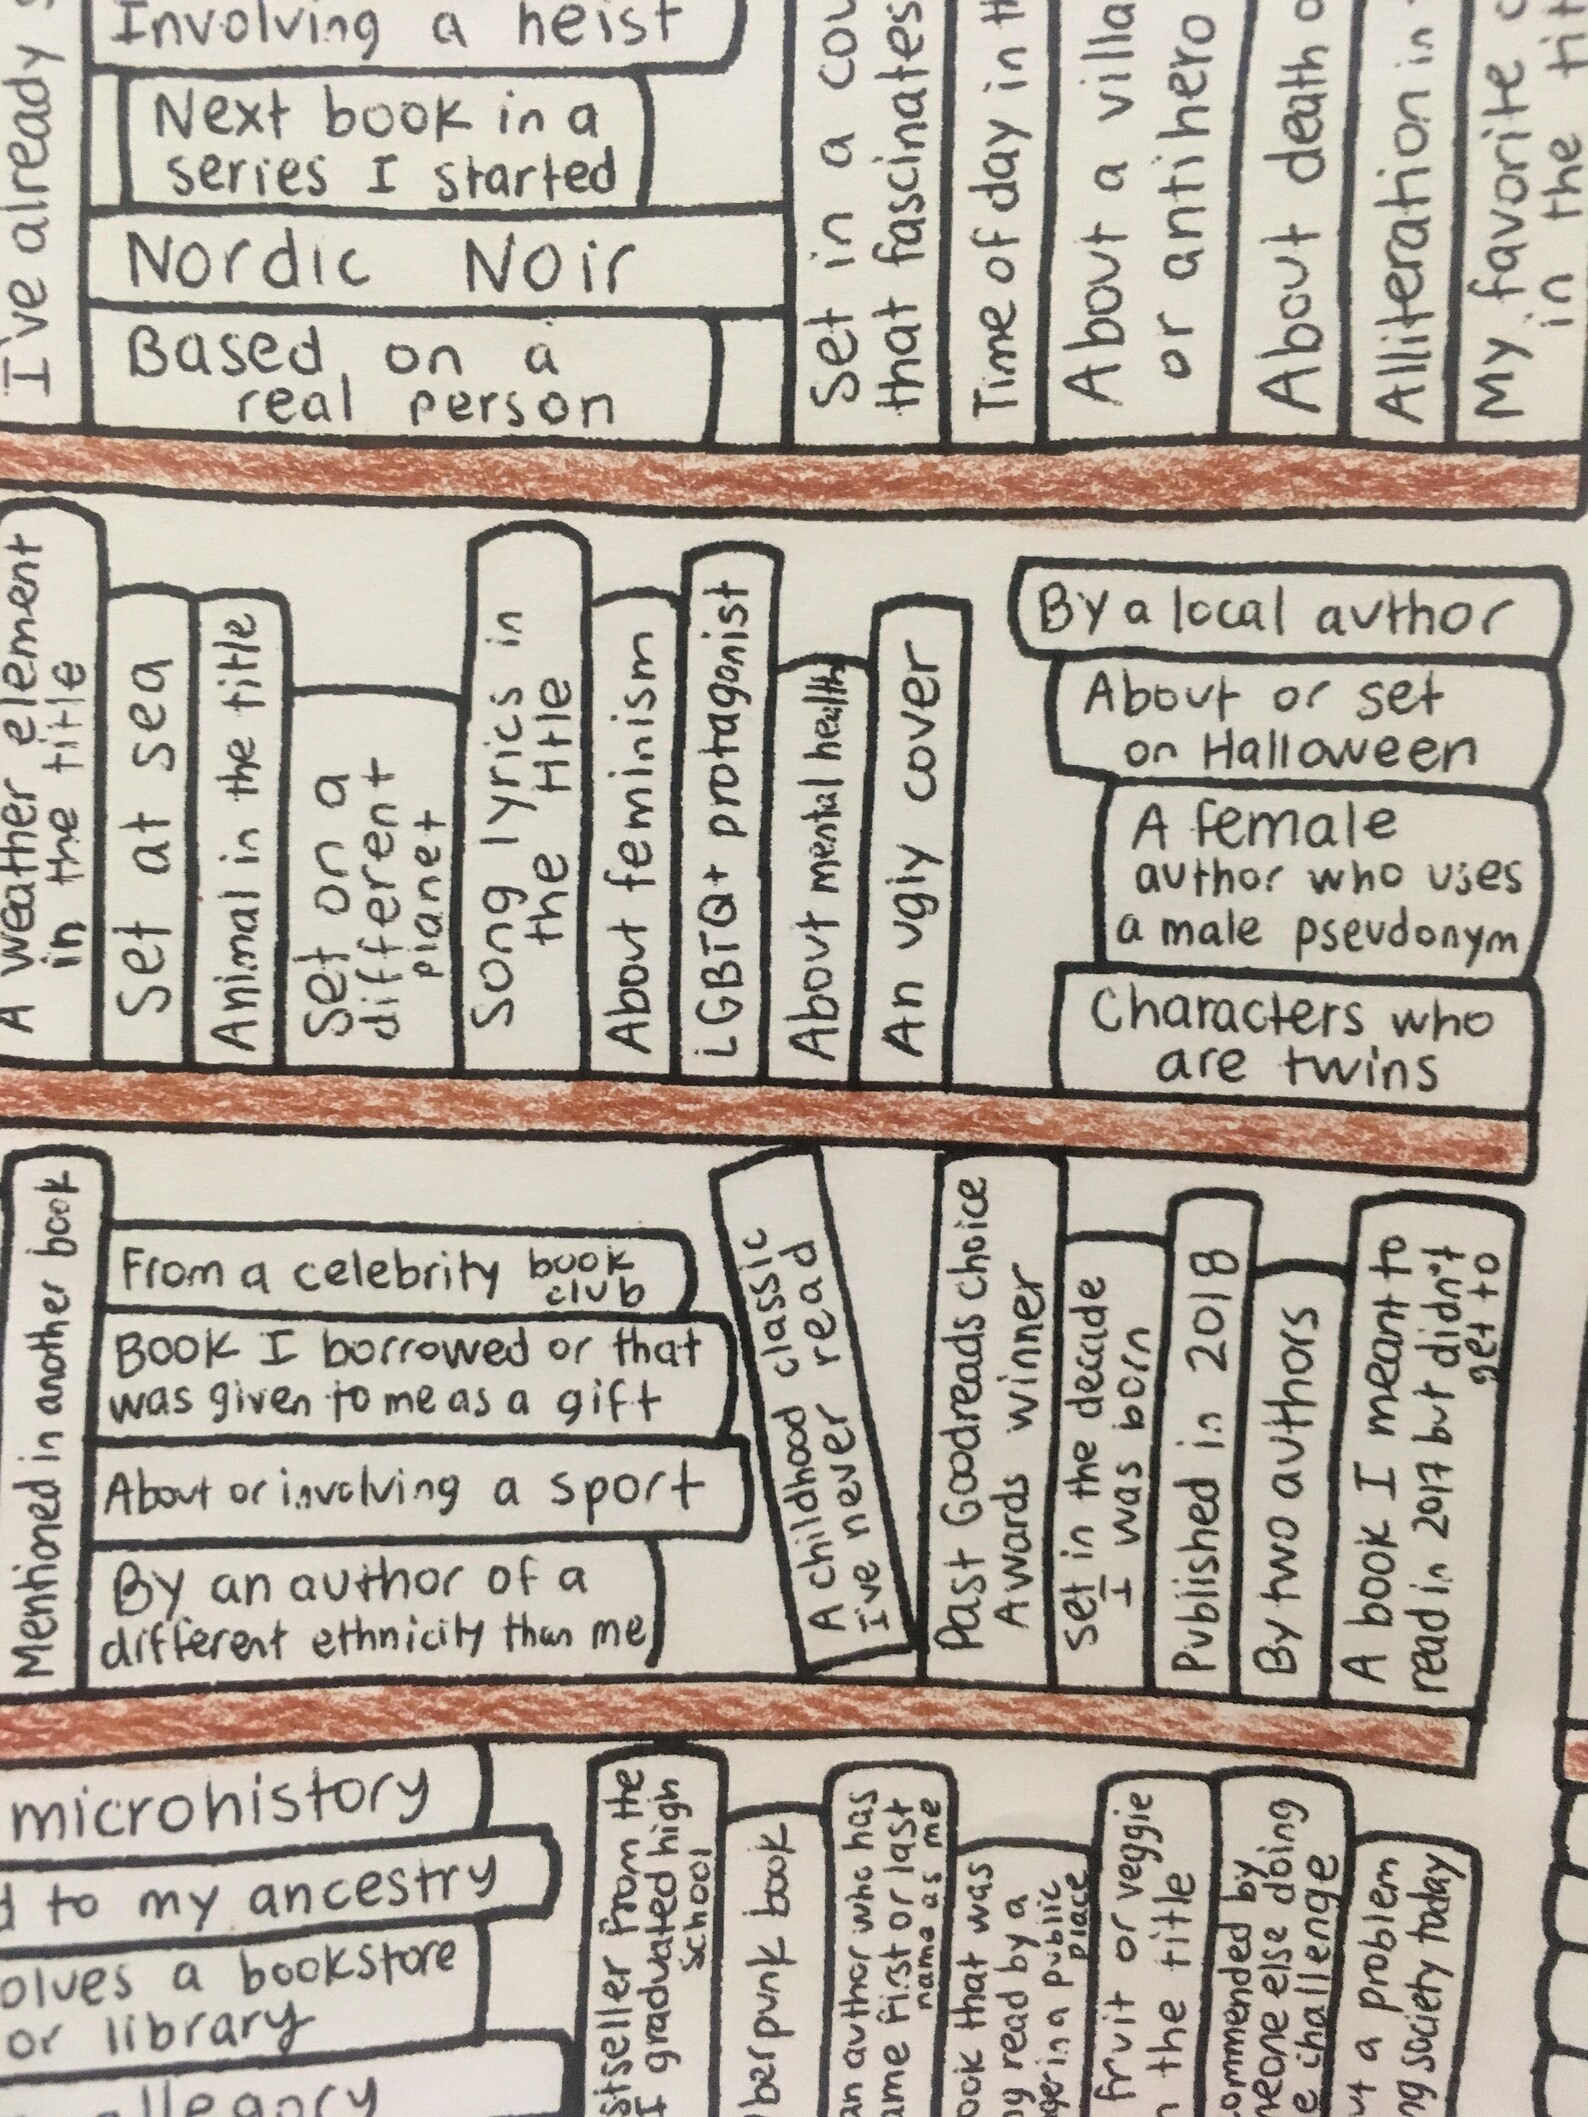 I've already
Involving a heist
Next book in a
series I started
Nordic Noir
Based on a
real person
Set in a
that fascinates
Time of day in
About a
or antihero
About death
Alliteration in
My favorite
in the
A weather element
in the title
Set at sea
Animal in the title
Set on a
different
planet
Song lyrics in
the title
About feminism
LGBTQ+ protagonist
About mental health
An ugly cover
By a local author
About or set
on Halloween
A female
author who uses
a male pseudonym
Characters who
are twins
Mentioned in another book
From a celebrity book
club
Book I borrowed or that
was given to me as a gift
About or involving a sport
By an author of a
different ethnicity than me
A childhood classic
I've never read
Past Goodreads choice
Awards winner
Set in the decade
I was born
Published in 2018
By two authors
A book I meant to
read in 2017 but didn't
get to
microhistory
to my ancestry
a bookstore
or library
from the
I graduated high
school
book
an author who has
first or last
name as me
that was
read by a
in a public
place
fruit or veggie
the title
by
else doing
challenge
a problem
society today